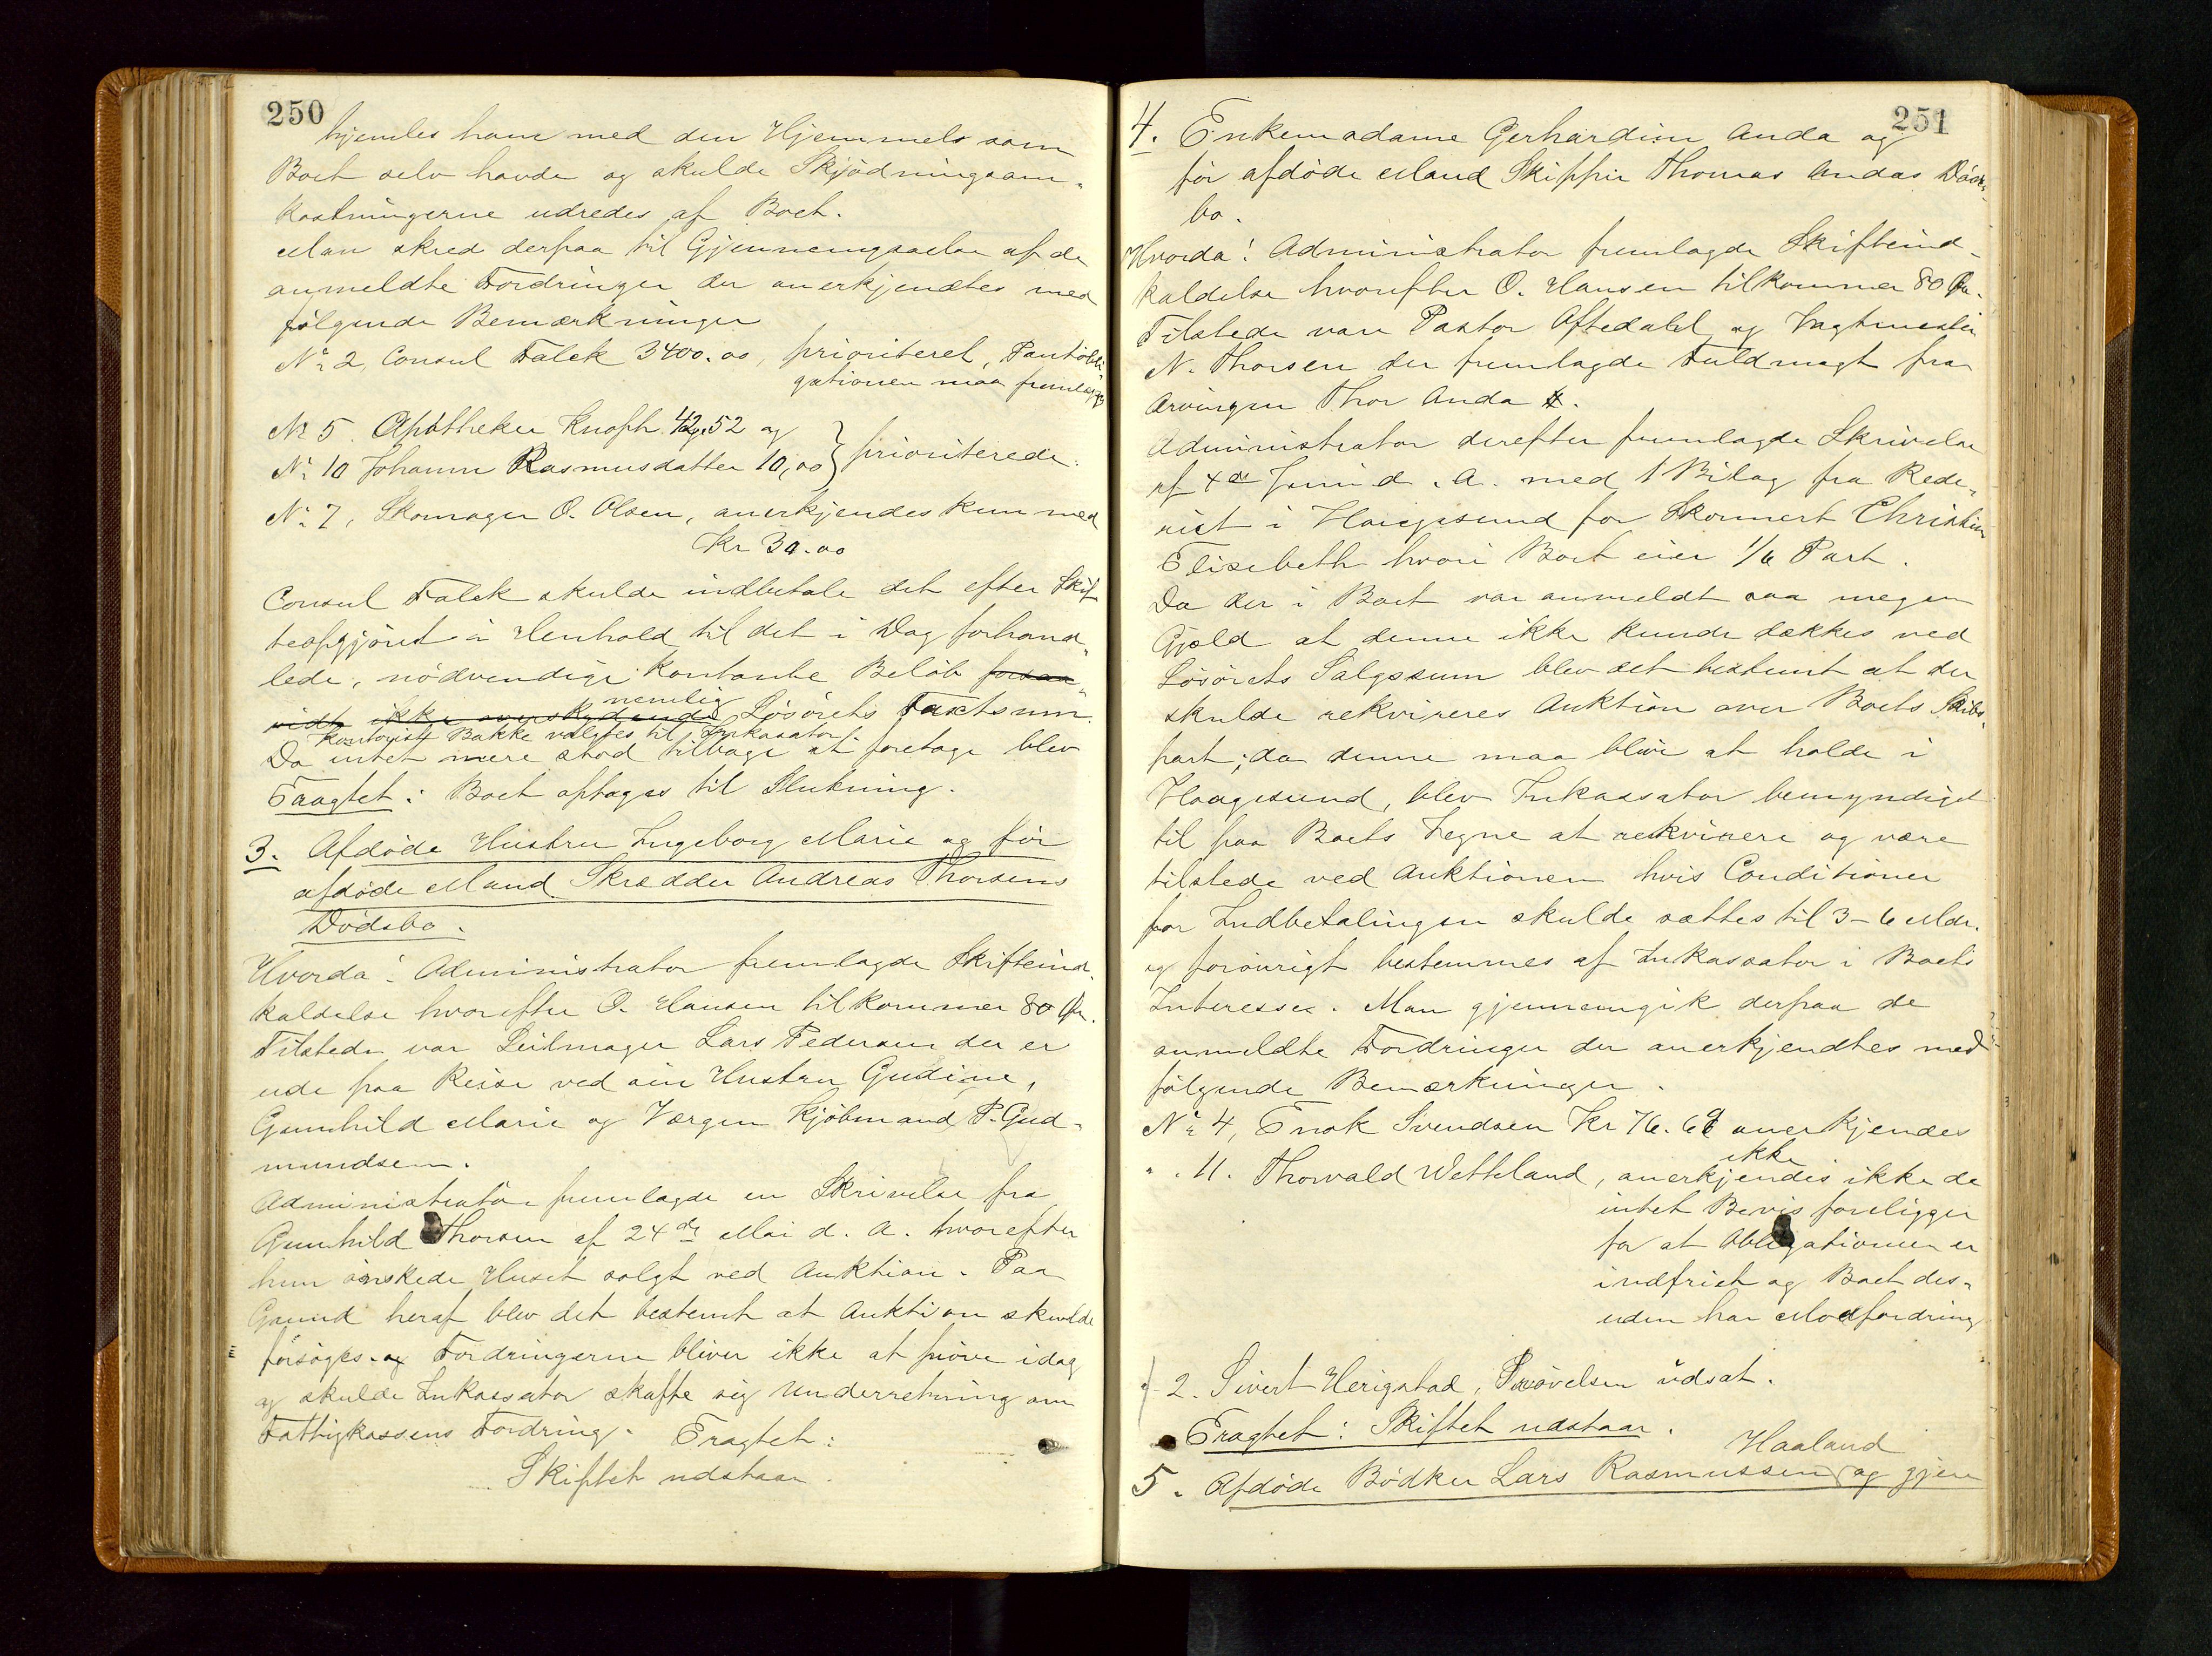 250
hjemles ham med den Hjemmels som
Boet selv havde og skulde Skjødningsom-
kostningerne udredes af Boet.
Man skred derpaa til Gjennemgaaelse af de
anmeldte Fordringer der anerkjendtes med
følgende Bemærkninger
No 2, Consul Falck 3400.00, prioriteret, Pantobli-
gationen maa fremlægges
No 5. Apotheker Knoph. 42,52 og
No 10 Johanne Rasmusdatter 10,00 } prioriterede.
No 7, Skomager O. Olsen, anerkjendes kun med
Kr 30.00
Consul Falck skulde indbetale det efter Skif-
teopgjøret i Henhold til det i Dag forhand-
lede, nødvendige kontante Beløb forsaa-
vidt ikke overskydende nemlig Løsørets Taxtsum.
Kontorist Bakke valgtes til Inkassator.
Da intet mere stod tilbage at foretage blev
Eragtet: Boet optages til Slutning.
3. Afdøde Hustru Ingeborg Marie og før
afdøde Mand Skrædder Andreas Thorsens
Dødsbo.
Hvorda: Administrator fremlagde Skifteind-
kaldelse hvorefter O. Hansen tilkommer 80 Øre.
Tilstede var Seilmager Lars Pedersen der er
ude paa Reise ved sin Hustru Gudine,
Gunhild Marie og Værgen Kjøbmand P. Gud-
mundsen.
Administrator fremlagde en Skrivelse fra
Gunhild Thorsen af 24de Mai d. A. hvorefter
hun ønskede Huset solgt ved Auktion. Paa
Grund heraf blev det bestemt at Auktion skulde
forsøges og Fordringerne bliver ikke at prøve idag
og skulde Inkassator skaffe sig Underretning om
Fattigkassens Fordring. Eragtet:
Skiftet udstaar.
251
4. Enkemadame Gerhardine Anda og
før afdøde Mand Skipper Thomas Andas Døds-
bo.
Hvorda: Administrator fremlagde Skifteind-
kaldelse hvorefter O. Hansen tilkommer 80 Øre.
Tilstede vare Pastor Aftedahl og Vagtmester
N. Thorsen der fremlagde Fuldmagt fra
Arvingen Thor Anda.
Administrator derefter fremlagde Skrivelse
af 4de Juni d. A. med 1 Bilag fra Rede-
riet i Haugesund for Skonnert Christine
Elisebeth hvori Boet eier 1/6 Part.
Da der i Boet var anmeldt saa megen
Gjæld at denne ikke kunde dækkes ved
Løsørets Salgssum blev det bestemt at der
skulde rekvireres Auktion over Boets Skibs-
part; da denne maa blive at holde i
Haugesund, blev Inkassator bemyndiget
til paa Boets Vegne at rekvirere og være
tilstede ved Auktionen hvis Conditioner
for Indbetalingen skulde sættes til 3-6 Mdr.
og forøvrigt bestemmes af Inkassator i Boets
Interesse. Man gjennemgik derpaa de
anmeldte Fordringer der anerkjendtes med
følgende Bemærkninger.
No 4, Enok Svendsen Kr 76.69 anerkjendes
ikke
" . 11. Thorvald Wetteland, anerkjendes ikke da
intet Bevis foreligger
for at Obligationen er
indfriet og Boet des-
uden har Modfordring
" 2. Sivert Herigstad, Prøvelsen udsat.
Eragtet: Skiftet udstaar.
Haaland
5. Afdøde Bødker Lars Rasmussen og gjen